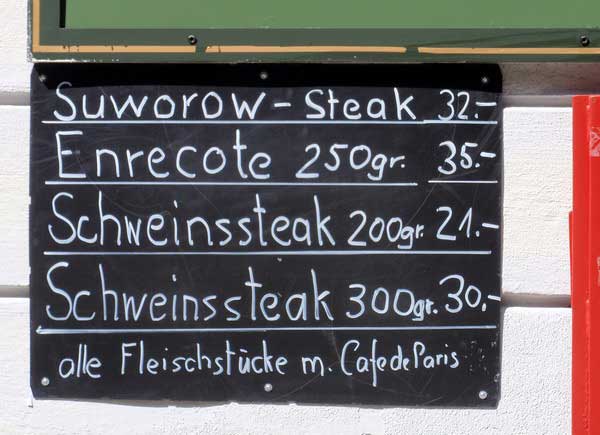 Suworow - Steak 32.-
Enrecote 250gr. 35.-
Schweinssteak 200gr. 21.-
Schweinssteak 300gr. 30.-
alle Fleischstücke m. Cafe de Paris